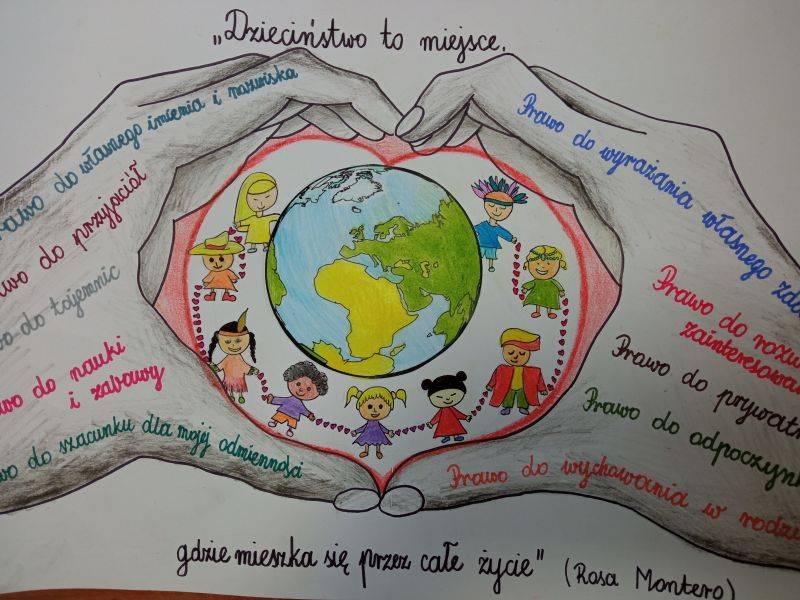 „Dzieciństwo to miejsce,
Prawo do własnego imienia i nazwiska
do przyjaciół
do tajemnic
do nauki
i zabawy
do szacunku dla mojej odmienności
Prawo do wyrażania własnego
Prawo do
Prawo do
Prawo do odpoczynku
Prawo do wychowania w
gdzie mieszka się przez całe życie" (Rosa Montero)